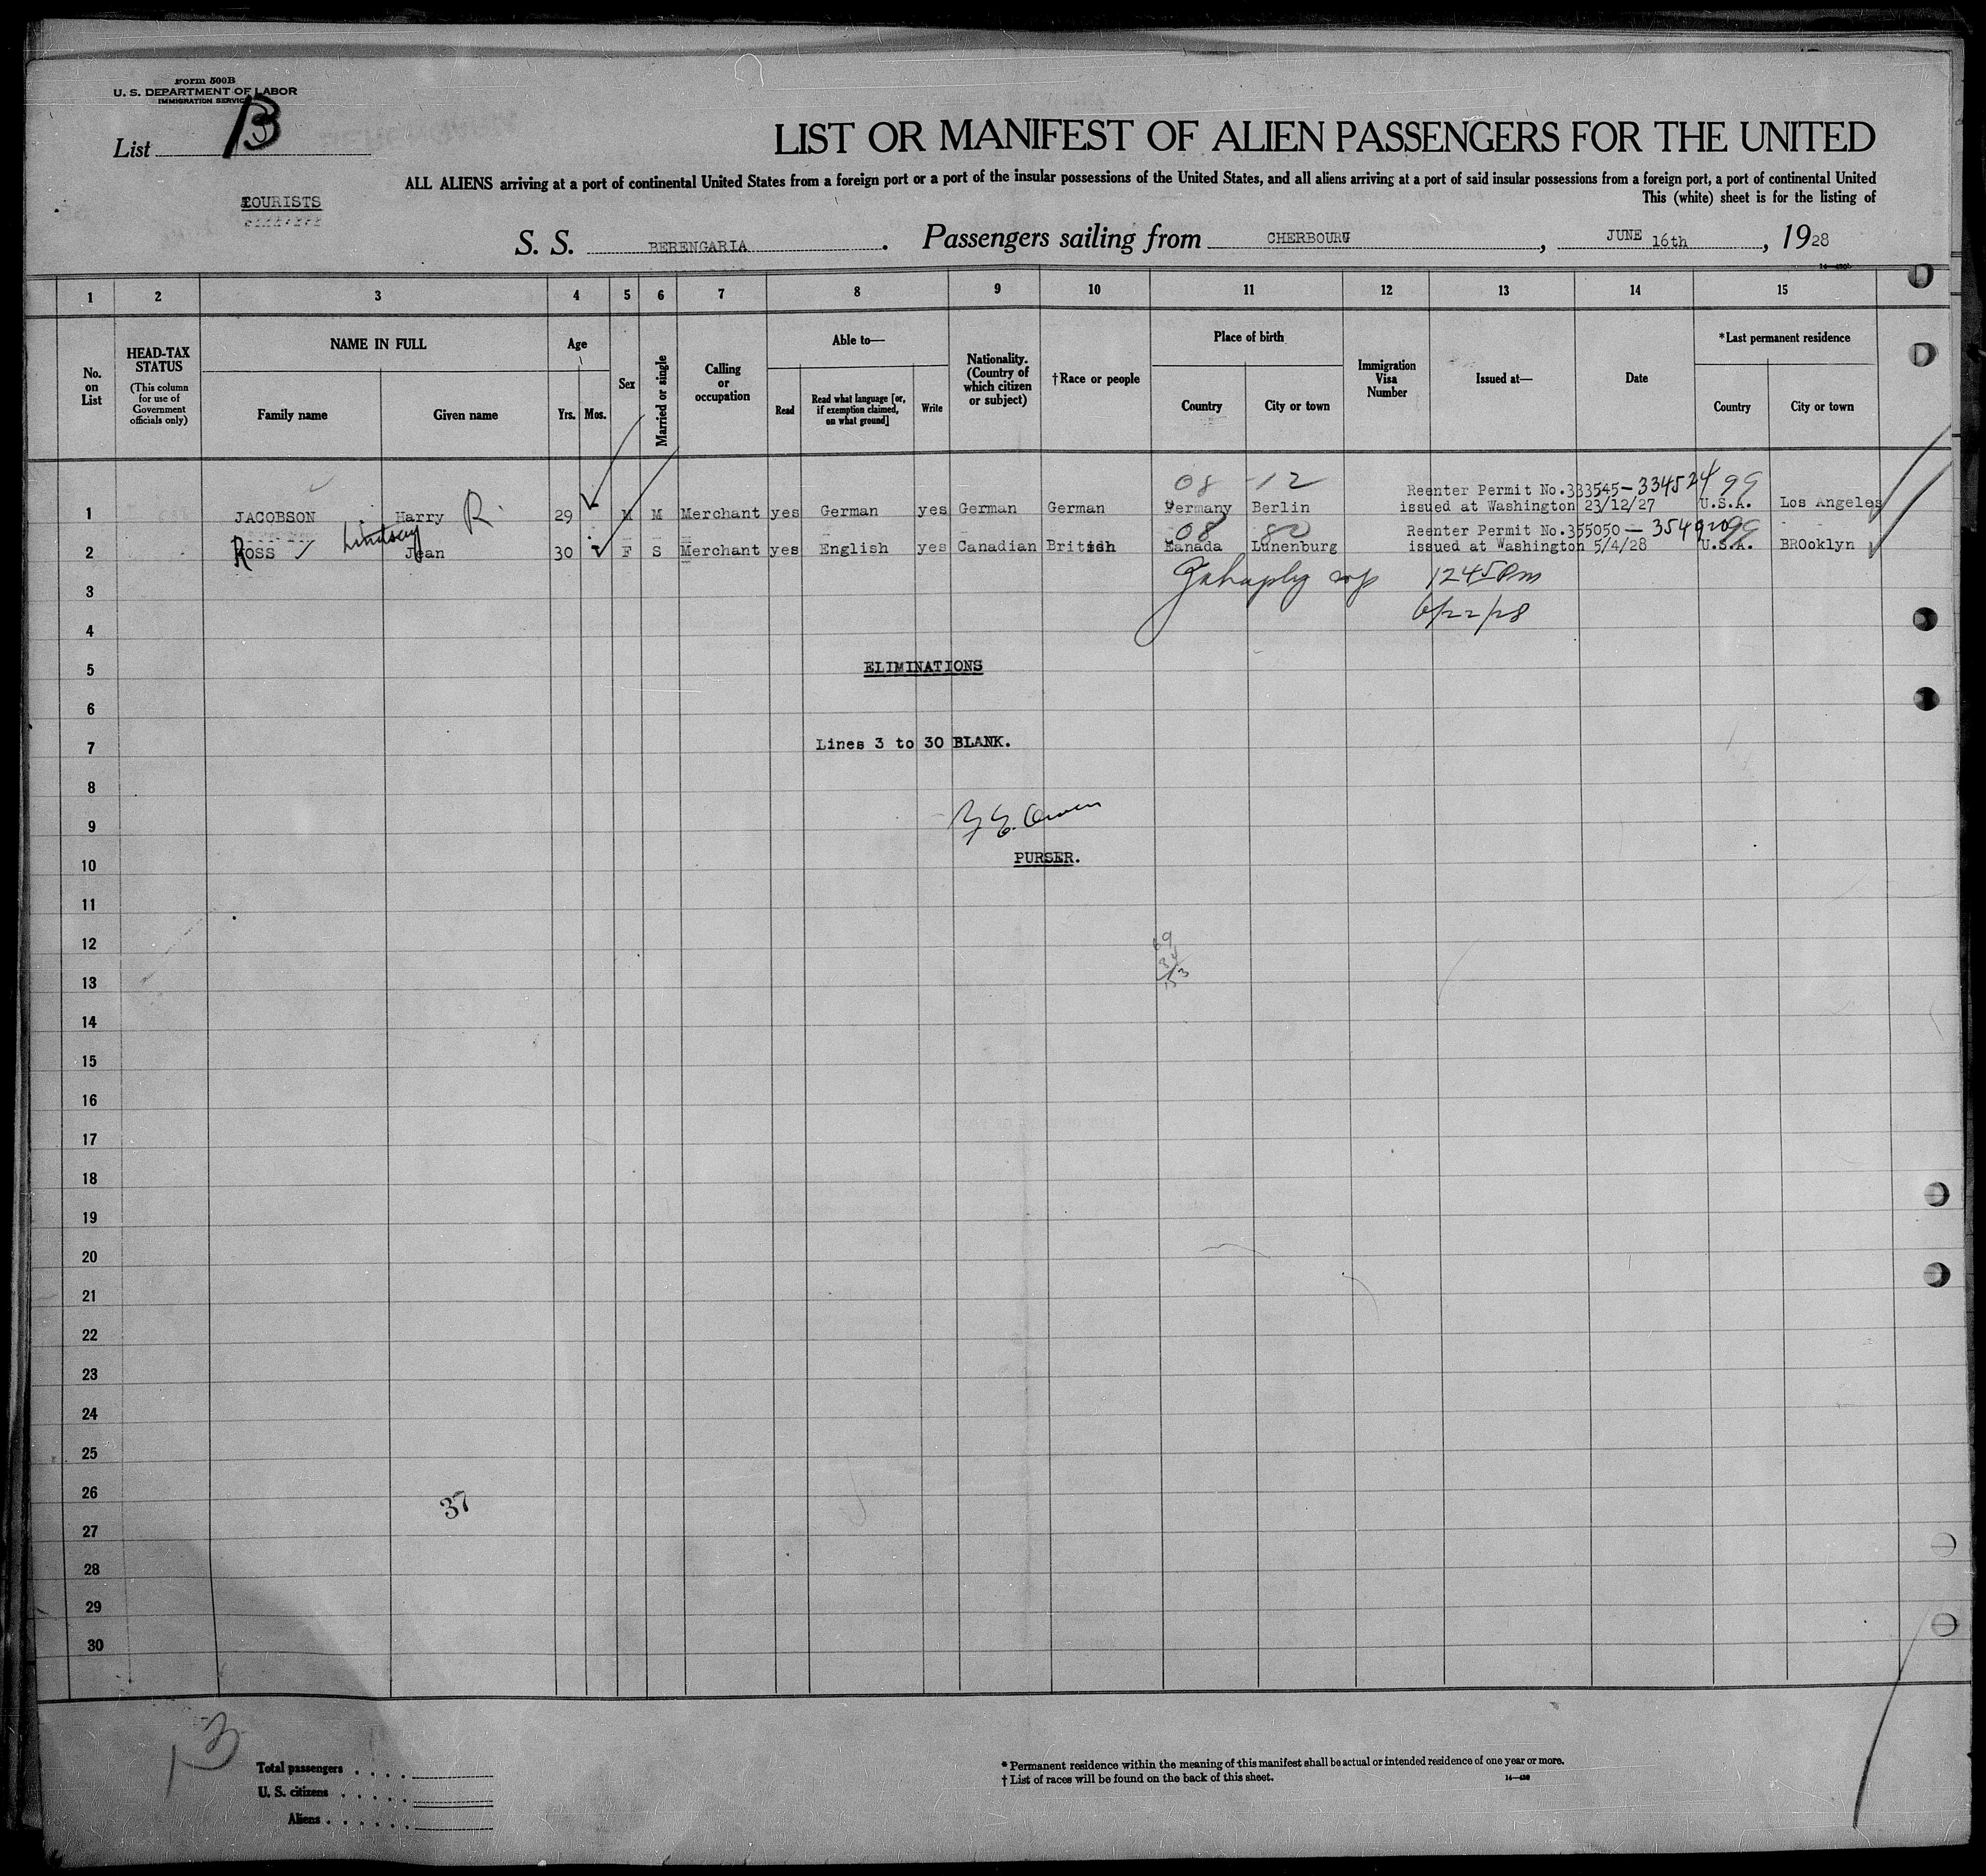 Form 500B
U. S. DEPARTMENT OF LABOR
IMMIGRATION SERVICE
List B
LIST OR MANIFEST OF ALIEN PASSENGERS FOR THE UNITED
ALL ALIENS arriving at a port of continental United States from a foreign port or a port of the insular possessions of the United States, and all aliens arriving at a port of said insular possessions from a foreign port, a port of continental United
This (white) sheet is for the listing of
TOURISTS
S. S. BERENGARIA . Passengers sailing from CHERBOURG , JUNE 16th , 1928
1 2 3 4 5 6 7 8 9 10 11 12 13 14 15
No. on List
HEAD-TAX STATUS (This column for use of Government officials only)
NAME IN FULL
Family name Given name
Age
Yrs. Mos.
Sex
Married or single
Calling or occupation
Able to—
Read Read what language [or, if exemption claimed, on what ground] Write
Nationality. (Country of which citizen or subject)
†Race or people
Place of birth
Country City or town
Immigration Visa Number
Issued at—
Date
*Last permanent residence
Country City or town
08 12 Reenter Permit No.333545 – 334524 99
1 JACOBSON Harry R. 29 M M Merchant yes German yes German German Germany Berlin issued at Washington 23/12/27 U.S.A. Los Angeles
Lindsay 08 80 Reenter Permit No.355050 – 354920 99
2 ROSS Jean 30 F S Merchant yes English yes Canadian British Canada Lunenburg issued at Washington 5/4/28 U.S.A. BROoklyn
1245 Pm
3
6/22/28
4
5 ELIMINATIONS
6
7 Lines 3 to 30 BLANK.
8
9 Owen
10 PURSER.
11
12
13
14
15
16
17
18
19
20
21
22
23
24
25
26
37
27
28
29
30
B
Total passengers
U. S. citizens
Aliens
* Permanent residence within the meaning of this manifest shall be actual or intended residence of one year or more.
† List of races will be found on the back of this sheet.